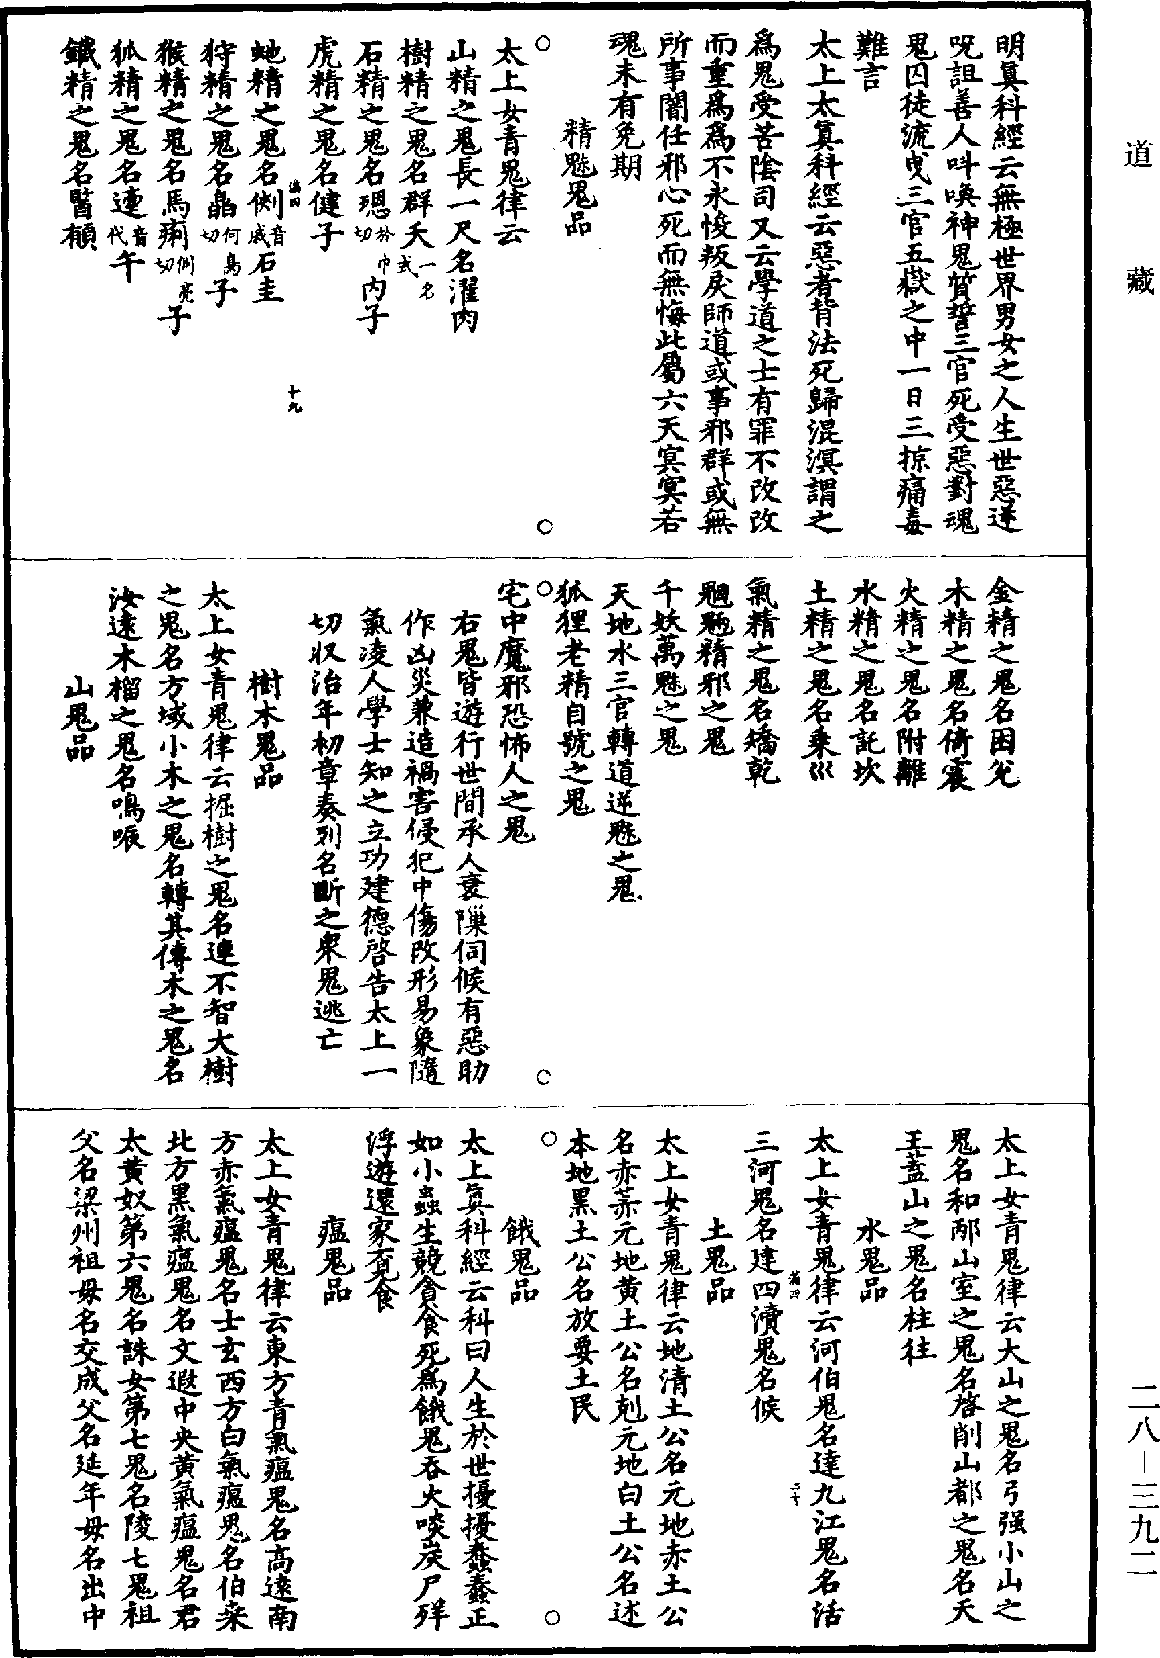 道藏
二八—三九二
明真科經云無極世界男女之人生世惡逆
呪詛善人呌喚神鬼質誓三官死受惡對魂
鬼囚徒流曳三官五嶽之中一日三掠痛毒
難言
太上太真科經云惡者背法死歸混溟謂之
爲鬼受苦陰司又云學道之士有罪不改改
而重爲爲不永悛叛戾師道或事邪群或無
所事闇任邪心死而無悔此屬六天冥冥若
魂未有免期
精魅鬼品
太上女青鬼律云
山精之鬼長一尺名濯肉
樹精之鬼名群夭一名式
石精之鬼名㻐於巾切內子
虎精之鬼名健子
蛇精之鬼名㑡音戚石圭
狩精之鬼名皛何鳥切子
猴精之鬼名馬痢側亮切子
狐精之鬼名逮音代午
鐵精之鬼名醫櫇
十九
金精之鬼名囷兊
木精之鬼名倚震
火精之鬼名附離
水精之鬼名託坎
土精之鬼名乗巛
氣精之鬼名矯乾
魍魎精邪之鬼
千妖萬魅之鬼
天地水三官轉道逆魅之鬼
狐狸老精自號之鬼
宅中魔邪恐怖人之鬼
右鬼皆遊行世間承人衰隟伺候有惡助
作凶災兼造禍害侵犯中傷改形易象隨
氣凌人學士知之立功建德啓告太上一
切収治年初章奏列名斷之衆鬼逃亡
樹木鬼品
太上女青鬼律云掘樹之鬼名連不智大樹
之鬼名方域小木之鬼名轉其傳木之鬼名
汝遠木榴之鬼名鳴㖡
山鬼品
太上女青鬼律云大山之鬼名弓强小山之
鬼名和邴山室之鬼名啓削山都之鬼名天
王蓋山之鬼名柱往
水鬼品
太上女青鬼律云河伯鬼名達九江鬼名活
三河鬼名建四瀆鬼名候
二十
土鬼品
太上女青鬼律云地清土公名元地赤土公
名赤萗元地黄土公名剋元地白土公名述
本地黑土公名放要土民
餓鬼品
太上真科經云科曰人生於世擾擾蠢蠢正
如小蟲生競貪食死爲餓鬼吞火啖炭尸殍
浮遊還家覓食
瘟鬼品
太上女青鬼律云東方青氣瘟鬼名高遠南
方赤氣瘟鬼名士玄西方白氣瘟鬼名伯桒
北方黒氣瘟鬼名文遐中央黄氣瘟鬼名君
太黄奴第六鬼名誅女第七鬼名陵七鬼祖
父名梁州祖毋名交成父名延年毋名出中